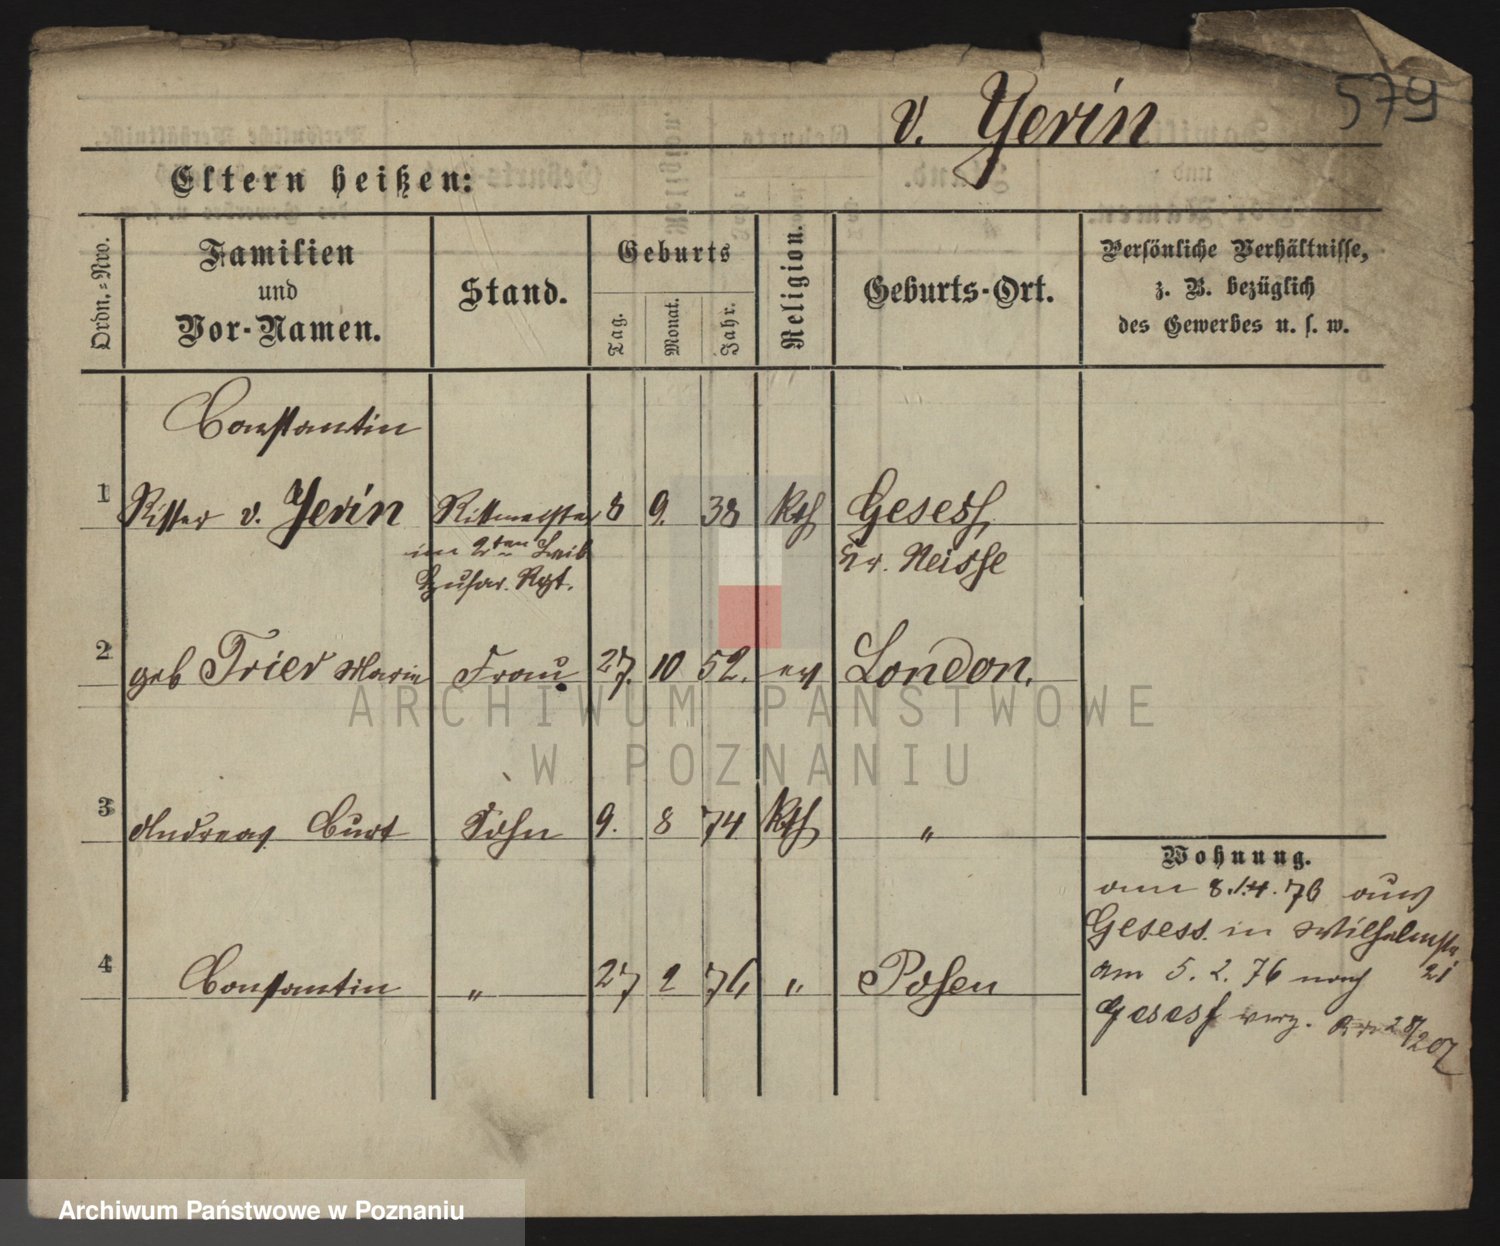 579
v. Yerin
Eltern heißen:
Ordn.=Nro.
Familien
und
Vor-Namen.
Stand.
Geburts
Tag.
Monat.
Jahr.
Religion.
Geburts-Ort.
Persönliche Verhältnisse,
z. B. bezüglich
des Gewerbes u. s. w.
Constantin
1 Ritter v. Yerin Rittmeister 8 9. 38 kth Gesess
im 2ten Leib Kr. Neisse
Husar. Rgt.
2 geb Fried Marie Frau 27. 10 52. ev London.
3 Andreas Curt Sohn 9. 8 74 kth "
4 Constantin " 27 2 76 " Posen
Wohnung.
am 8./4. 76 aus
Gesess. in Wilhelmstr.
21
am 5. 2. 76 nach
Gesess verz.
ARCHIWUM PAŃSTWOWE
W POZNANIU
Archiwum Państwowe w Poznaniu